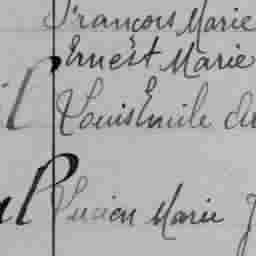 François Marie
Ernest Marie
Louis Emile
Lucien Marie J